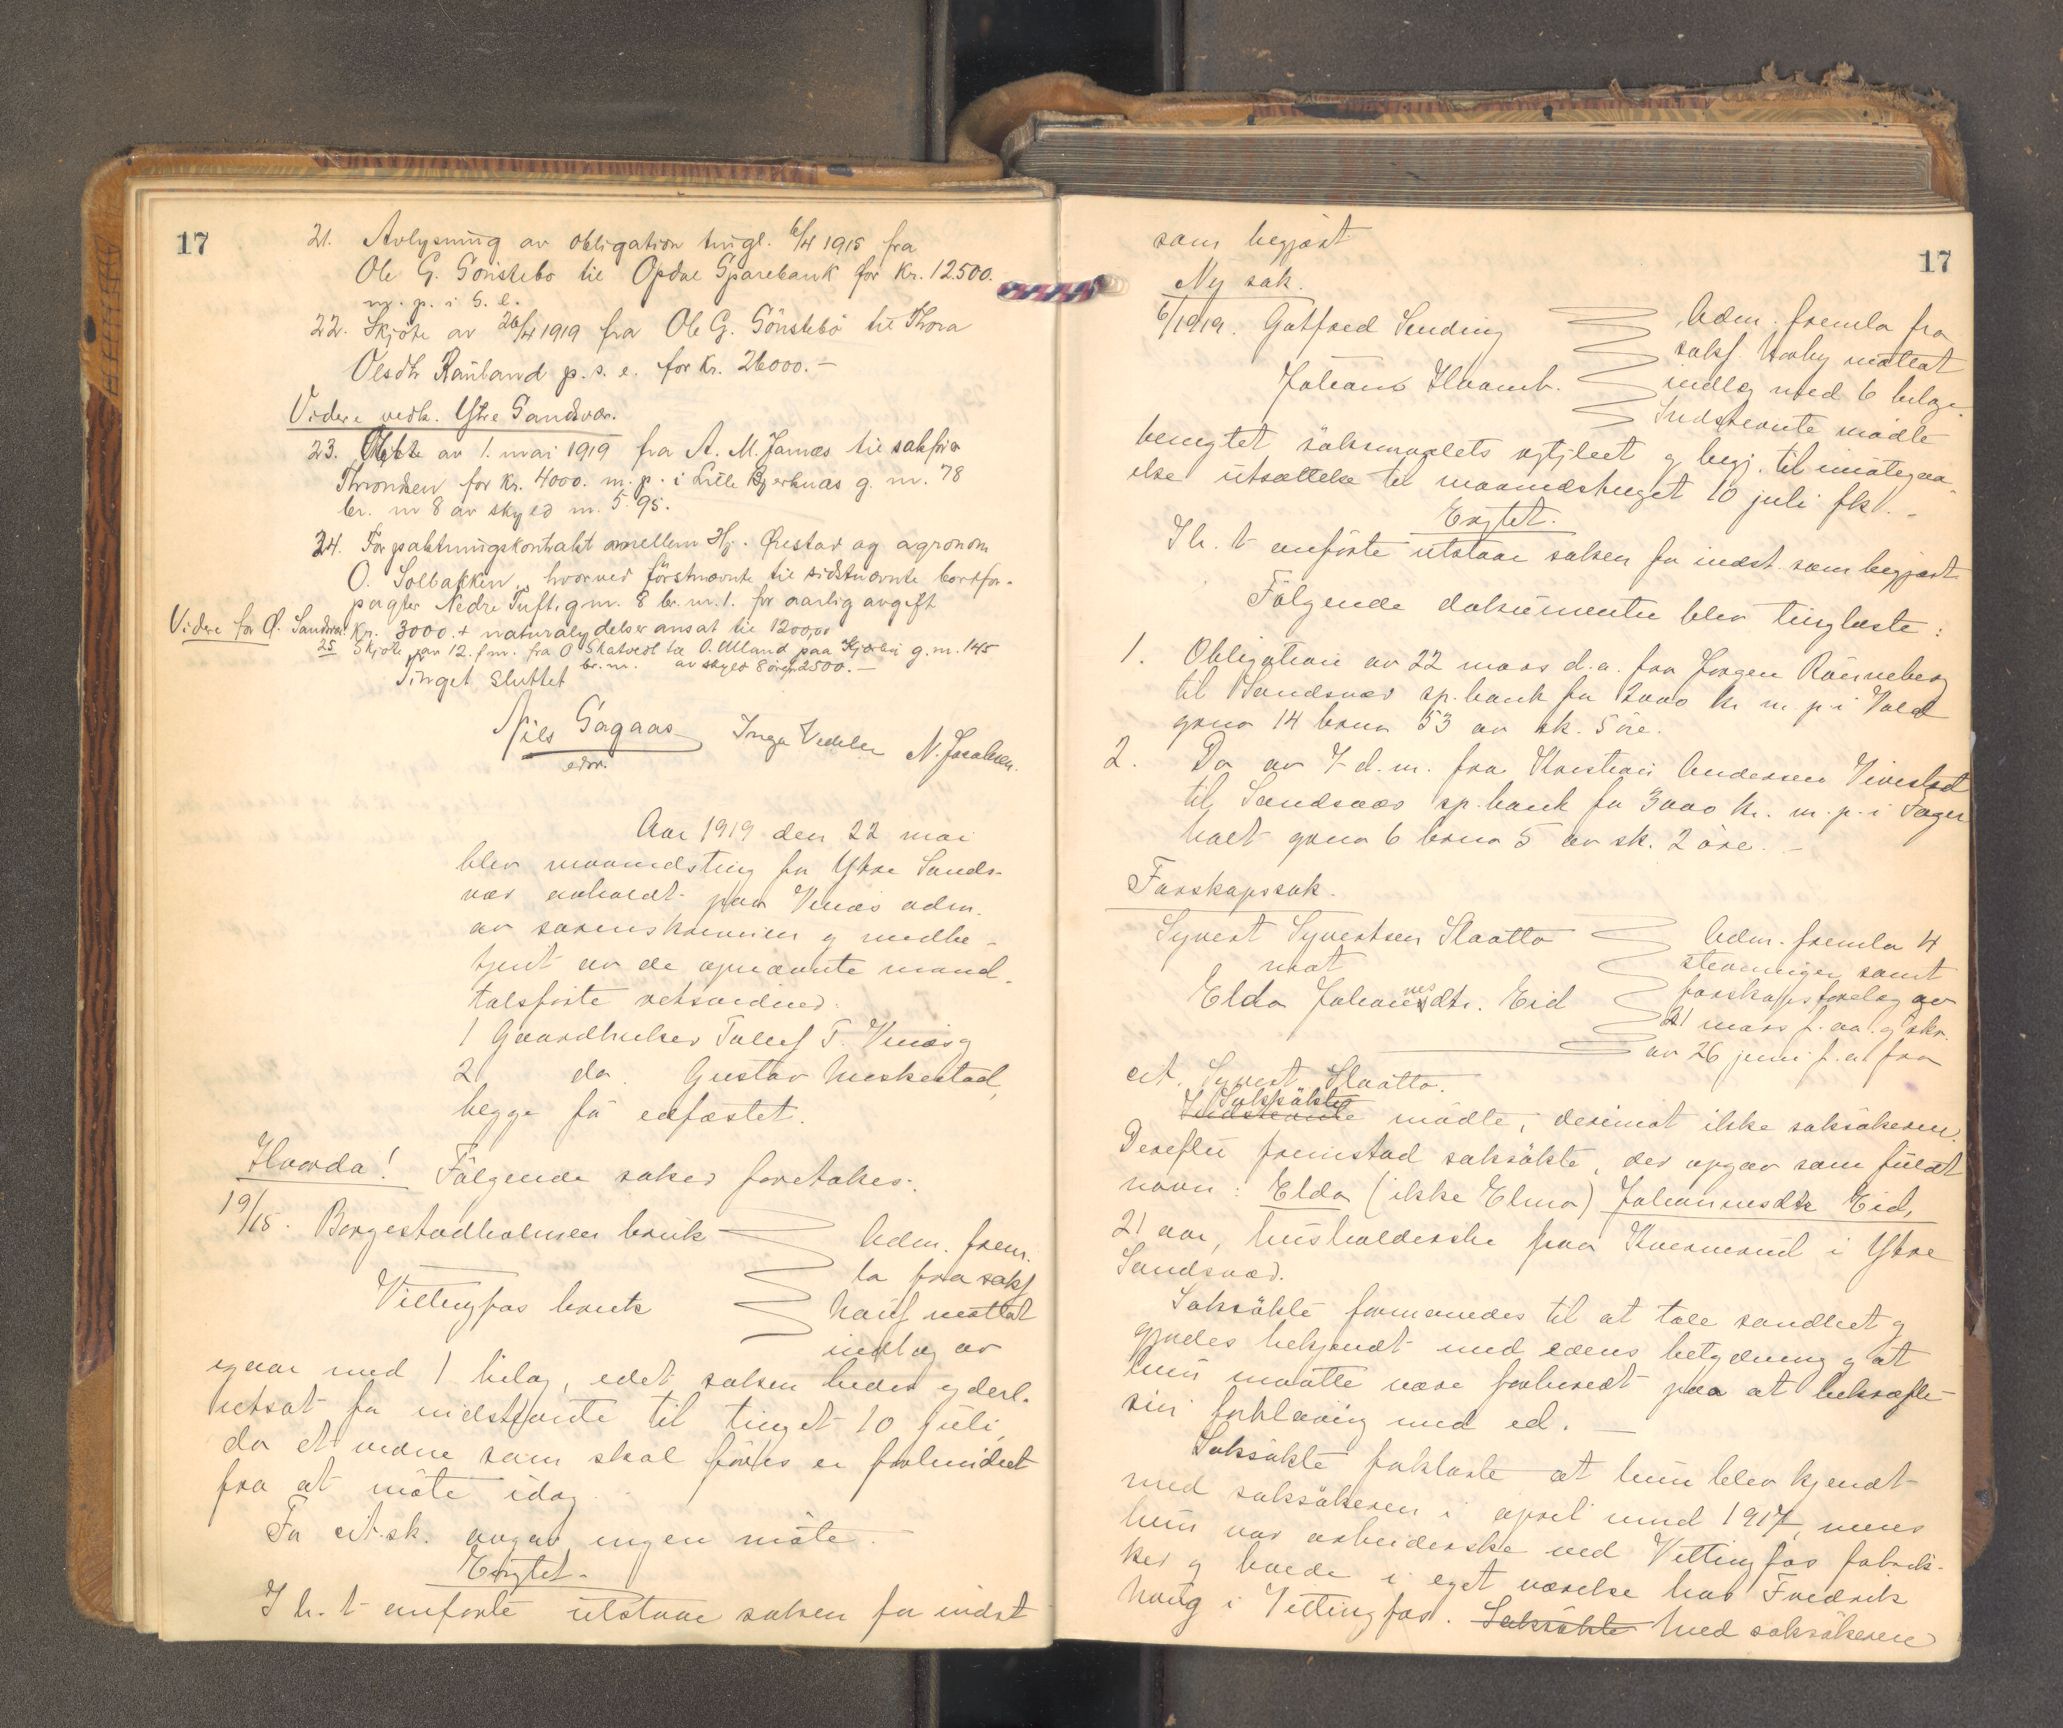 17
21. Avlysning av obligation tingl. 6/4 1915 fra
Ole G. Sönstebö til Opdal Sparebank for Kr. 12500.
m. p. i s. e.
22. Skjöte av 26/4 1919 fra Ole G. Sönstebö til Thora
Olsdtr Rauland p. s. e. for Kr. 26000.-
Videre vedk. Ytre Sandsvær.
23. av 1. mai 1919 fra A. M. Jarnæs til sakfører
Throndsen for Kr. 4000. m. p. i Lille Bjerknæs g. nr. 78
br. nr 8 av skyld m. 5.95.
24. Forpaktningskontrakt mellem Hj. Ørestad og agronom
O. Solbakken, hvorved förstnævnte til sidstnævnte bortfor-
pagter Nedre Tuft g.nr. 8 br. nr. 1. for aarlig avgift
Videre for Ø. Sandsvær. Kr. 3000.+ naturalydelser ansat til 1200,00
25 Skjöte av 12. f.m. fra O. Skatvedt til O. Ulland paa g.nr. 145
br.nr. av skyld 8 øre, 2500.-
Tinget sluttet
Nils Sagaas Inga Vedeler N. Jacobsen.
edsv.
Aar 1919 den 22 mai
blev maanedsting for Ytre Sands-
vær avholdt paa Vinæs adm.
av sorenskriveren og medbe-
tjent av de opnævnte mand-
talsförte retsvidner:
1 Gaardbruker Tollef T. Vinæs og
2 do. Gustav Meskestad,
begge fö edfæstet.
Hvorda! Fölgende saker foretokes:
19/15. Borgestadholmen bruk
Vittingfos bruk
Adm. frem-
la fra sakf
Hauf mottat
indlæg av
igaar med 1 bilag, idet saken bedes yderl.
utsat for indstevnte til tinget 10 juli,
da et vidne som skal föres er forhindret
fra at möte idag.
For cit.sk. avgav ingen möte.
Eragtet.
I h. t anförte utstaar saken for indst
17
som begjært
Ny sak.
6/1919. Gotfred Sending
Johans Hvamb.
Adm. fremla fra
sakf. Hoby mottat
indlæg med 6 bilage.
Indstevnte mödte
benegtet söksmaalets rigtighet og begj. til imötegaa-
else utsættelse til maanedstinget 10 juli fk. -
Eragtet.
I h. t anförte utstaar saken for indst. som begjært
Fölgende dokumenter blev tinglæste:
1. Obligation av 22 mars d.a. fra Jörgen Rönneberg
til Sandsvær sp.bank for 2000 kr m. p. i Vold
gnr 14 brnr 53 av sk. 5 öre.
2. Do av 7 d.m. fra Kristian Andersen Vivestad
til Sandsvær sp.bank for 3000 kr. m. p. i Fager
holt gnr 6 brnr 5 av sk. 2 öre. -
Farskapssak.
Syvert Syvertsen Slaatto
mot
Elda Johannesdtr. Eid
Adm. fremla 4
stevninger samt
farskapsforelæg av
21 mars f. aa. og skr.
av 26 juni f.a. fra
cit. Syvert Slaatto.
Indstevnte Saksökte mödte, derimot ikke saksökeren.
Derefter fremstod saksökte, der opgav som fuldt
navn: Elda (ikke Elma) Johannesdtr Eid,
21 aar, husholderske paa Kvernerud i Ytre
Sandsvær.
Saksökte formanedes til at tale sandhet og
gjordes bekjendt med edens betydning og at
hun maatte være forberedt paa at bekræfte
sin forklaring med ed. -
Saksökte forklarte at hun blev kjendt
med saksökeren i april mnd 1917, mens
hun var arbeiderske ved Vittingfos fabrik-
ker og boede i eget værelse hos Fredrik
Haug i Vittingfos. Saksökte Med saksökeren